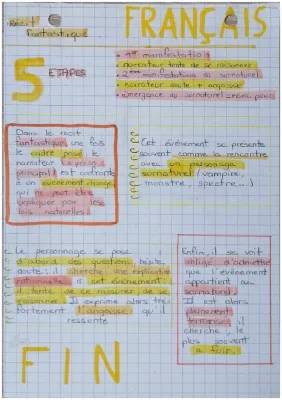 Récit
fantastique
FRANÇAIS
5 ETAPES
1ère manifestation
narrateur tente de se raisonner
2ème manifestation du surnaturel
narrateur doute + angoisse
émergence du surnaturel
Dans le récit
fantastique, une fois
le cadre posé, le
narrateur
principal) est confronté
à un événement étrange
qui ne peut être
expliqué par les
lois naturelles.
Cet événement se présente
souvent comme la rencontre
avec un personnage
surnaturel (vampire,
monstre, spectre...)
Le personnage se pose
d'abord des questions, hésite,
doute : il cherche une explication
rationnelle à cet événement
et tente de se rassurer, de se
raisonner. Il exprime alors très
fortement l'angoisse qu'il
ressente
Enfin, il se voit
obligé d'admettre
que l'événement
appartient au
surnaturel.
Il est alors
pleinement
terrorisé, il
cherche, le
plus souvent
à fuir.
FIN